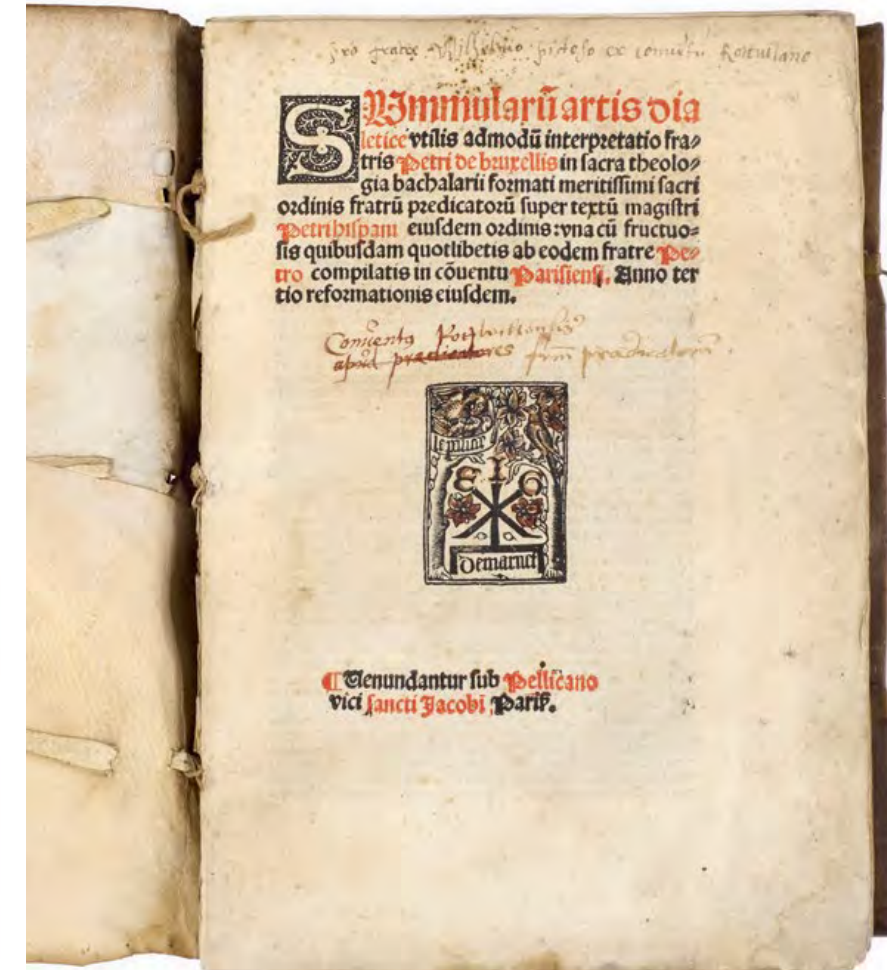 pro fratre Wilhelmo pictoso ex conventu
SUmmularū artis dia
letice vtilis admodū interpretatio fra⸗
tris Petri de bruxellis in sacra theolo⸗
gia bachalarii formati meritissimi sacri
ordinis fratrū predicatorū super textū magistri
Petri hispani eiusdem ordinis: vna cū fructuo⸗
sis quibusdam quotlibetis ab eodem fratre Pe⸗
tro compilatis in cōuentu Parisiensi. Anno ter
tio reformationis eiusdem.
apud prædicatores
le pilicā
E I G
demarnef
¶ Uenundantur sub Pellicano
vici sancti Jacobi Parisꝭ.